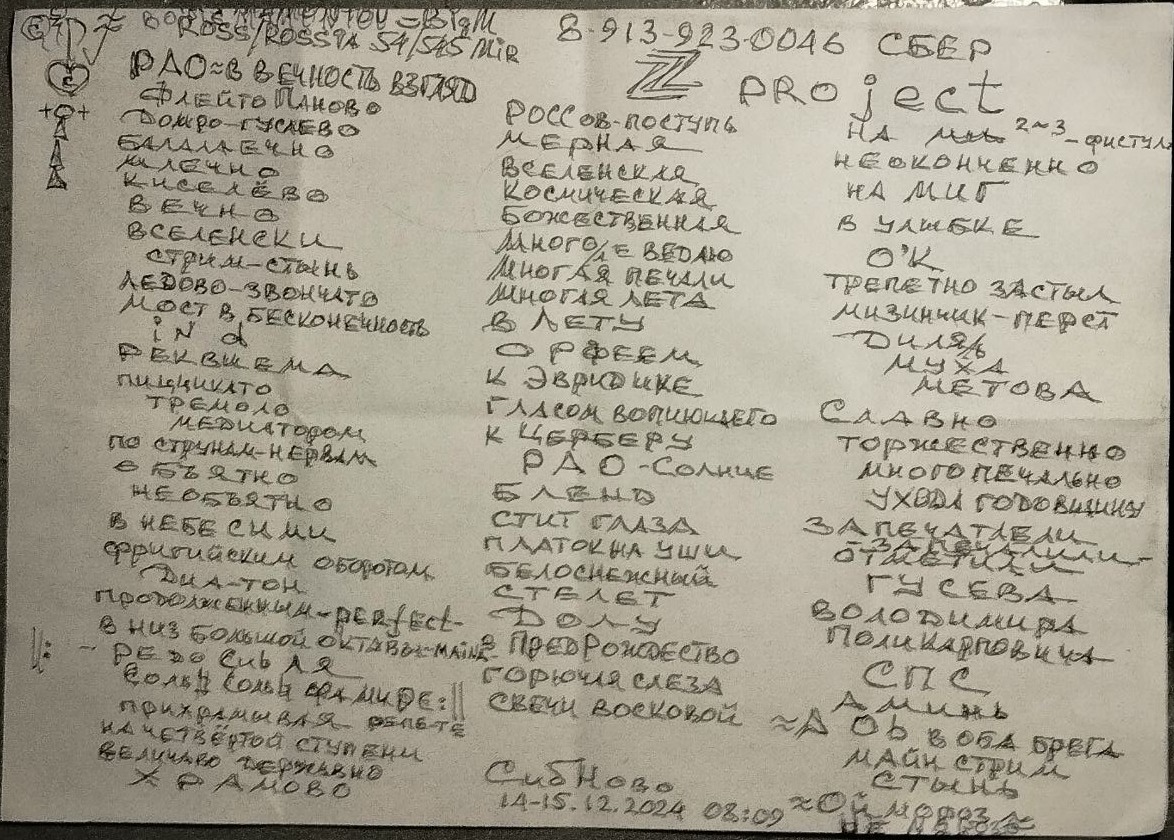 ROSS/ROSSIA 54/545 MiR
8-913-923-0046 СБЕР
Z PROject
РАО≈В ВЕЧНОСТЬ ВЗГЛЯД
ФЛЕЙТО ПАНОВО
ДОМРО-ГУСЛЕВО
БАЛАЛАЕЧНО
МЛЕЧНО
КИСЕЛЁВО
ВЕЧНО
ВСЕЛЕНСКИ
СТРИМ-СТЫНЬ
ЛЕДОВО-ЗВОНЧАТО
МОСТ В БЕСКОНЕЧНОСТЬ
iN d
РЕКВИЕМА
ПИЦЦИКАТО
ТРЕМОЛО
МЕДИАТОРОМ
ПО СТРУНАМ-НЕРВАМ
ОБЪЯТНО
НЕОБЪЯТНО
В НЕБЕ СИМИ
ФРИГИЙСКИМ ОБОРОТОМ
ДИА-ТОН
ПРОДОЛЖЕННЫМ-PERfect-
В НИЗ БОЛЬШОЙ ОКТАВЫ-MAiNE
||: РЕ ДО СИ Ь ЛЯ
СОЛЬ СОЛЬ ФА МИ РЕ:||
ПРИХРАМЫВАЯ РЕПЕ-ТЕ
НА ЧЕТВЁРТОЙ СТУПЕНИ
ВЕЛИЧАВО ДЕРЖАВНО
ХРАМОВО
РОССОВ-ПОСТУПЬ
МЕРНАЯ
ВСЕЛЕНСКАЯ
КОСМИЧЕСКАЯ
БОЖЕСТВЕННАЯ
МНОГО/Е ВЕДАЮ
МНОГАЯ ПЕЧАЛИ
МНОГАЯ ЛЕТА
В ЛЕТУ
ОРФЕЕМ
К ЭВРИДИКЕ
ГЛАСОМ ВОПИЮЩЕГО
К ЦЕРБЕРУ
РАО-СОЛНЦЕ
БЛЕНД
СТИТ ГЛАЗА
ПЛАТОК НА УШИ
БЕЛОСНЕЖНЫЙ
СТЕЛЕТ
ДОЛУ
В ПРЕДРОЖДЕСТВО
ГОРЮЧАЯ СЛЕЗА
СВЕЧИ ВОСКОВОЙ
СибНово
14-15.12.2024 08:09
НА 2~3-ФИСТУЛА
НЕОКОНЧЕННО
НА МИГ
В УЛЫБКЕ
О'К
ТРЕПЕТНО ЗАСТЫЛ
МИЗИНЧИК-ПЕРСТ
ДИЛЯЬ
МУХА
МЕТОВА
СЛАВНО
ТОРЖЕСТВЕННО
МНОГОПЕЧАЛЬНО
УХОДА ГОДОВЩИНУ
ЗАПЕЧАТЛЕЛИ
-ЗАПЕЧАЛИЛИ-
ОТМЕТИЛИ
ГУСЕВА
ВОЛОДИМИРА
ПОЛИКАРПОВИЧА
СПС
АМИНЬ
≈А ОЬ В ОБА БРЕГА
МАЙН СТРИМ
СТЫНЬ
≈ОЙ МОРОЗ≈
НЕ МОРОЗЬ